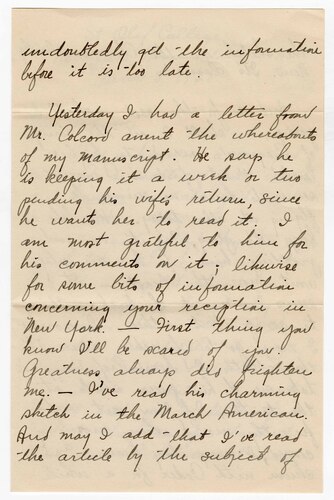 undoubtedly get the information
before it is too late.
Yesterday I had a letter from
Mr. Colcord anent the whereabouts
of my manuscript. He says he
is keeping it a week or two
pending his wife's return, since
he wants her to read it. I
am most grateful to him for
his comments on it; likewise
for some bits of information
concerning your reception in
New York. — First thing you
know I'll be scared of you.
Greatness always did frighten
me. — I've read his charming
sketch in the March American.
And may I add that I've read
the article by the subject of